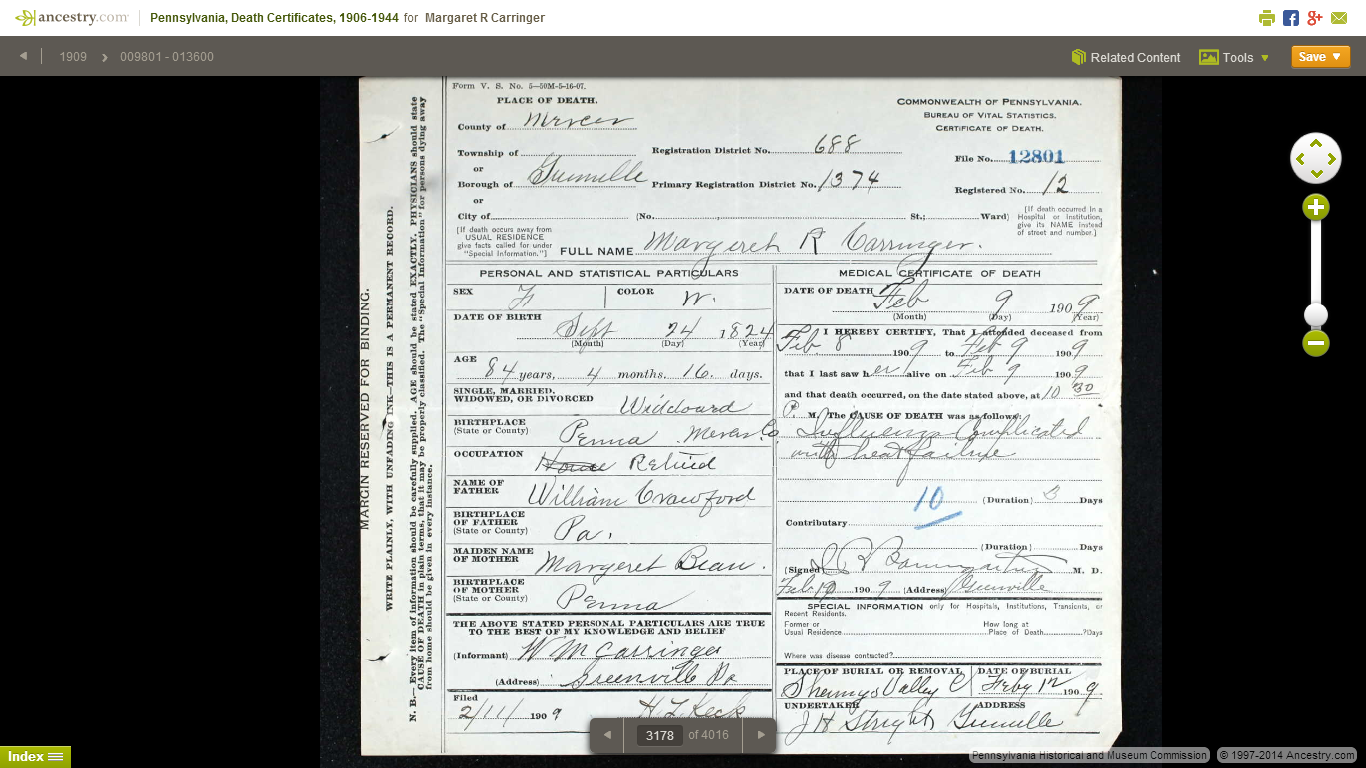 ancestry.com Pennsylvania, Death Certificates, 1906-1944 for Margaret R Carringer
1909 › 009801 - 013600 Related Content Tools Save
MARGIN RESERVED FOR BINDING.
WRITE PLAINLY, WITH UNFADING INK—THIS IS A PERMANENT RECORD.
N. B.—Every item of information should be carefully supplied. AGE should be stated EXACTLY. PHYSICIANS should state
CAUSE OF DEATH in plain terms, that it may be properly classified. The "Special Information" for persons dying away
from home should be given in every instance.
Form V. S. No. 5—50M-5-16-07.
PLACE OF DEATH.
County of Mercer
Township of
or
Borough of Greenville
or
City of (No. St.; Ward)
COMMONWEALTH OF PENNSYLVANIA.
BUREAU OF VITAL STATISTICS.
CERTIFICATE OF DEATH.
Registration District No. 688
Primary Registration District No. 1374
File No. 12801
Registered No. 12
[If death occurred in a
Hospital or Institution,
give its NAME instead
of street and number.]
[If death occurs away from
USUAL RESIDENCE
give facts called for under
"Special Information."]
FULL NAME Margeret R Carringer.
PERSONAL AND STATISTICAL PARTICULARS
SEX F COLOR W.
DATE OF BIRTH
Sept 24 1824
(Month) (Day) (Year)
AGE
84 years, 4 months. 16 days.
SINGLE, MARRIED,
WIDOWED, OR DIVORCED
Widdoard
BIRTHPLACE
(State or County)
Penna Mercer Co
OCCUPATION
House Retired
NAME OF
FATHER
William Crawford
BIRTHPLACE
OF FATHER
(State or County)
Pa.
MAIDEN NAME
OF MOTHER
Margeret Bean.
BIRTHPLACE
OF MOTHER
(State or County)
Penna
THE ABOVE STATED PERSONAL PARTICULARS ARE TRUE
TO THE BEST OF MY KNOWLEDGE AND BELIEF
(Informant) W M Carringer
(Address) Greenville Pa
Filed
2/11/ 1909 H L Keck
MEDICAL CERTIFICATE OF DEATH
DATE OF DEATH Feb 9 1909
(Month) (Day) (Year)
I HEREBY CERTIFY, That I attended deceased from
Feb 8 1909 to Feb 9 1909
that I last saw her alive on Feb 9 1909
and that death occurred, on the date stated above, at 10 30
P. M. The CAUSE OF DEATH was as follows:
Influenza Complicated
with heart failure
10 (Duration) 3 Days
Contributary
(Duration) Days
(Signed) M. D.
Feb 1909 (Address) Greenville
SPECIAL INFORMATION only for Hospitals, Institutions, Transients, or
Recent Residents.
Former or
Usual Residence
How long at
Place of Death ?Days
Where was disease contacted?
PLACE OF BURIAL OR REMOVAL DATE OF BURIAL
Valley C Feby 12 1909
UNDERTAKER ADDRESS
J H Greenville
3178 of 4016
Pennsylvania Historical and Museum Commission © 1997-2014 Ancestry.com
Index